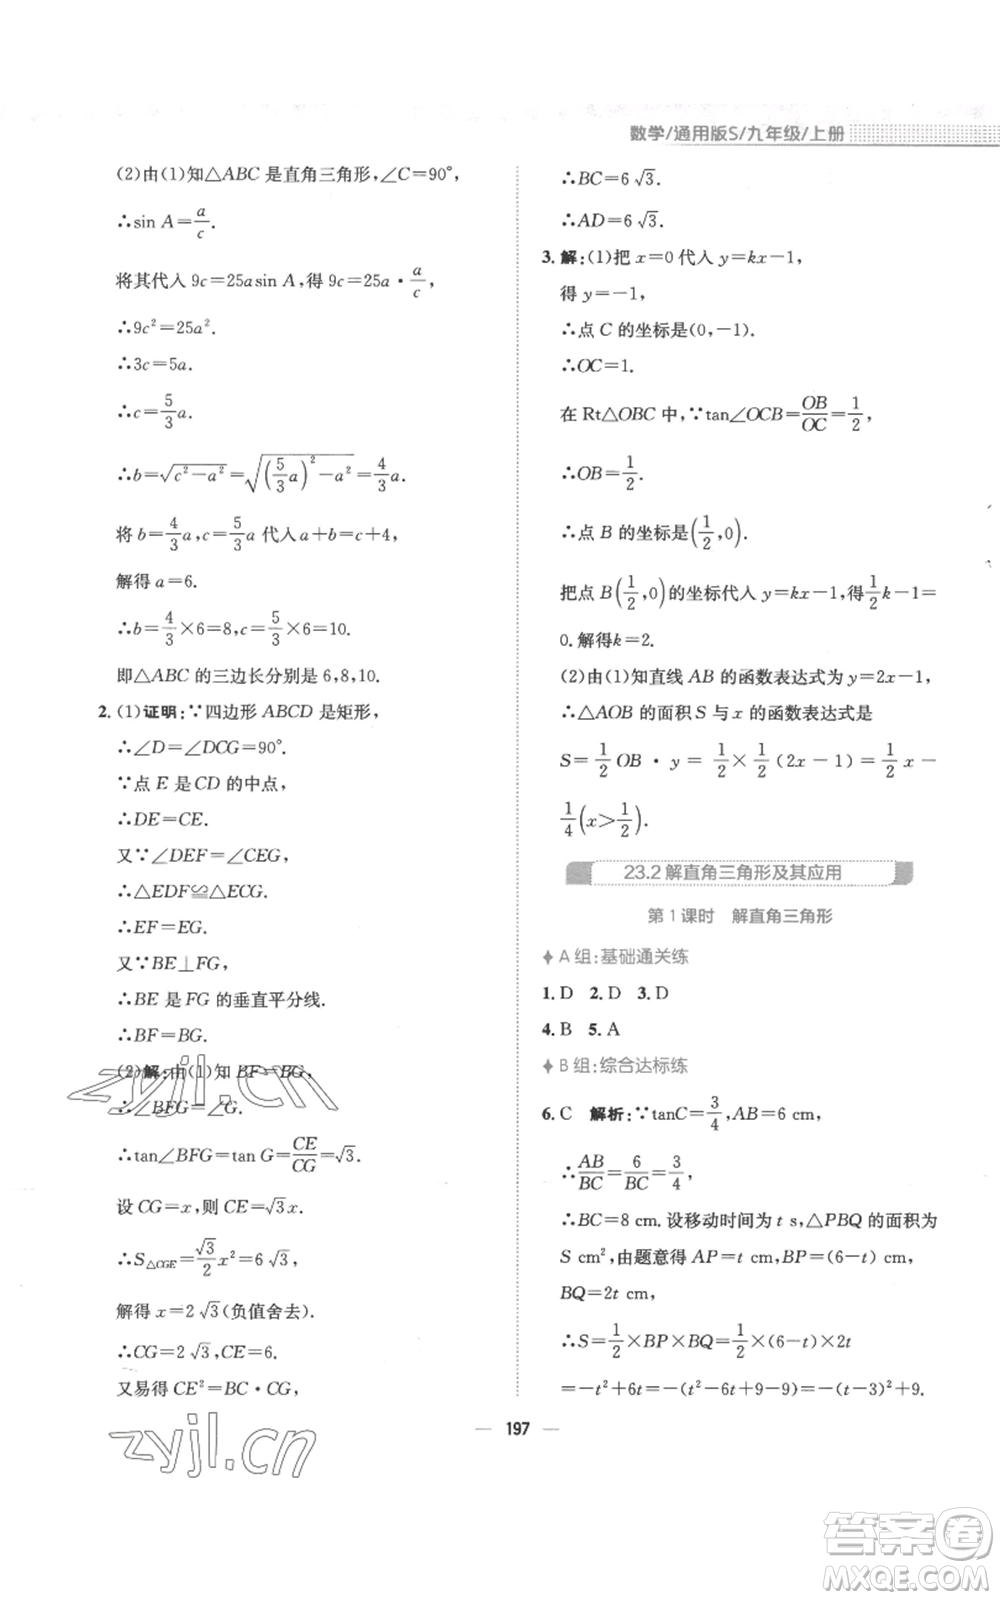 数学/通用版S/九年级/上册
(2)由(1)知△ABC 是直角三角形,∠C=90°,
∴sin A=a/c.
将其代入 9c=25asin A,得 9c=25a·a/c,
∴9c²=25a².
∴3c=5a.
∴c=5/3a.
∴b=√(c²-a²)=√((5/3a)²-a²)=4/3a.
将 b=4/3a,c=5/3a 代入 a+b=c+4,
解得 a=6.
∴b=4/3×6=8,c=5/3×6=10.
即△ABC 的三边长分别是 6,8,10.
2. (1)证明:∵四边形 ABCD 是矩形,
∴∠D=∠DCG=90°.
∵点 E 是 CD 的中点,
∴DE=CE.
又∵∠DEF=∠CEG,
∴△EDF≌△ECG.
∴EF=EG.
又∵BE⊥FG,
∴BE 是 FG 的垂直平分线.
∴BF=BG.
(2)解:由(1)知 BF=BG,
∴∠BFG=∠G.
∴tan∠BFG=tan G=CE/CG=√3.
设 CG=x,则 CE=√3x.
∴S△CGE=√3/2x²=6√3.
解得 x=2√3(负值舍去).
∴CG=2√3,CE=6.
又易得 CE²=BC·CG,
∴BC=6√3.
∴AD=6√3.
3. 解:(1)把 x=0 代入 y=kx-1,
得 y=-1,
∴点 C 的坐标是(0,-1).
∴OC=1.
在 Rt△OBC 中,∵tan∠OCB=OB/OC=1/2,
∴OB=1/2.
∴点 B 的坐标为(1/2,0).
把点 B(1/2,0)的坐标代入 y=kx-1,得1/2k-1=
0.解得k=2.
(2)由(1)知直线 AB 的函数表达式为 y=2x-1,
∴△AOB 的面积 S 与 x 的函数表达式是
S=1/2OB·y=1/2×1/2(2x-1)=1/2x-
1/4(x>1/2).
23.2 解直角三角形及其应用
第 1 课时 解直角三角形
A 组:基础通关练
1. D 2. D 3. D
4. B 5. A
B 组:综合达标练
6. C 解析:∵tanC=3/4,AB=6 cm,
∴AB/BC=6/BC=3/4,
∴BC=8 cm.设移动时间为 t s,△PBQ 的面积为
S cm²,由题意得 AP=t cm,BP=(6-t) cm,
BQ=2t cm,
∴S=1/2×BP×BQ=1/2×(6-t)×2t
=-t²+6t=-(t²-6t+9-9)=-(t-3)²+9.
197
zyjl.cn
zyjl.cn
答案圈
MXQE.COM